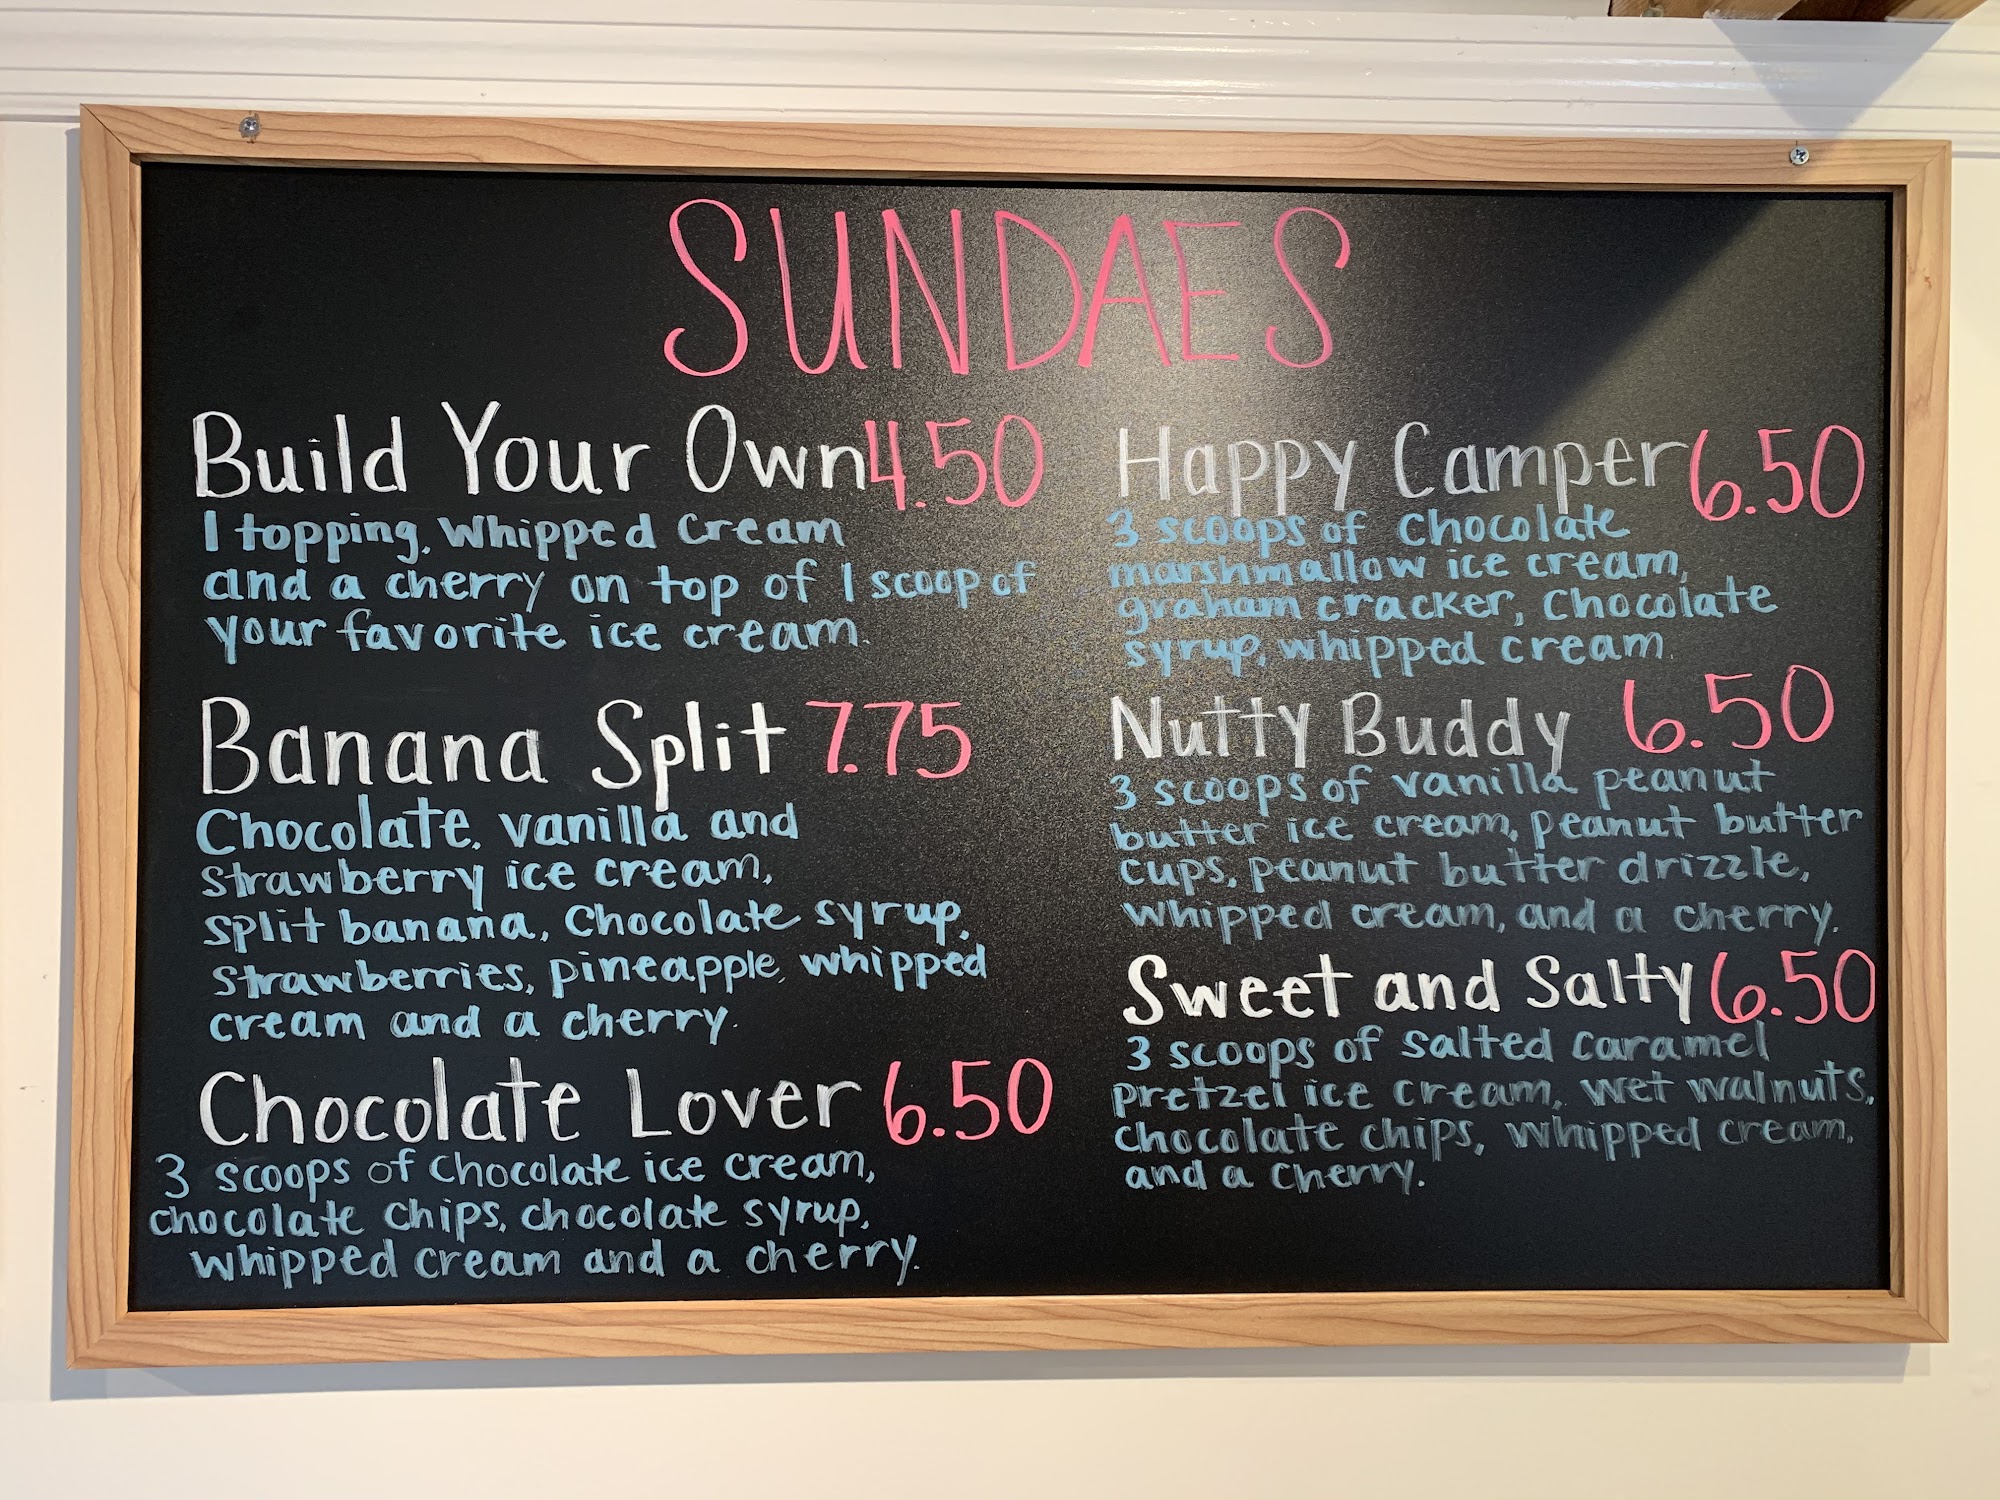 SUNDAES
Build Your Own 4.50
1 topping, whipped cream
and a cherry on top of 1 scoop of
your favorite ice cream.
Banana Split 7.75
Chocolate, vanilla and
strawberry ice cream,
split banana, chocolate syrup,
strawberries, pineapple, whipped
cream and a cherry.
Chocolate Lover 6.50
3 scoops of chocolate ice cream,
chocolate chips, chocolate syrup,
whipped cream and a cherry.
Happy Camper 6.50
3 scoops of chocolate
marshmallow ice cream,
graham cracker, chocolate
syrup, whipped cream.
Nutty Buddy 6.50
3 scoops of vanilla peanut
butter ice cream, peanut butter
cups, peanut butter drizzle,
whipped cream, and a cherry.
Sweet and Salty 6.50
3 scoops of salted caramel
pretzel ice cream, wet walnuts,
chocolate chips, whipped cream,
and a cherry.